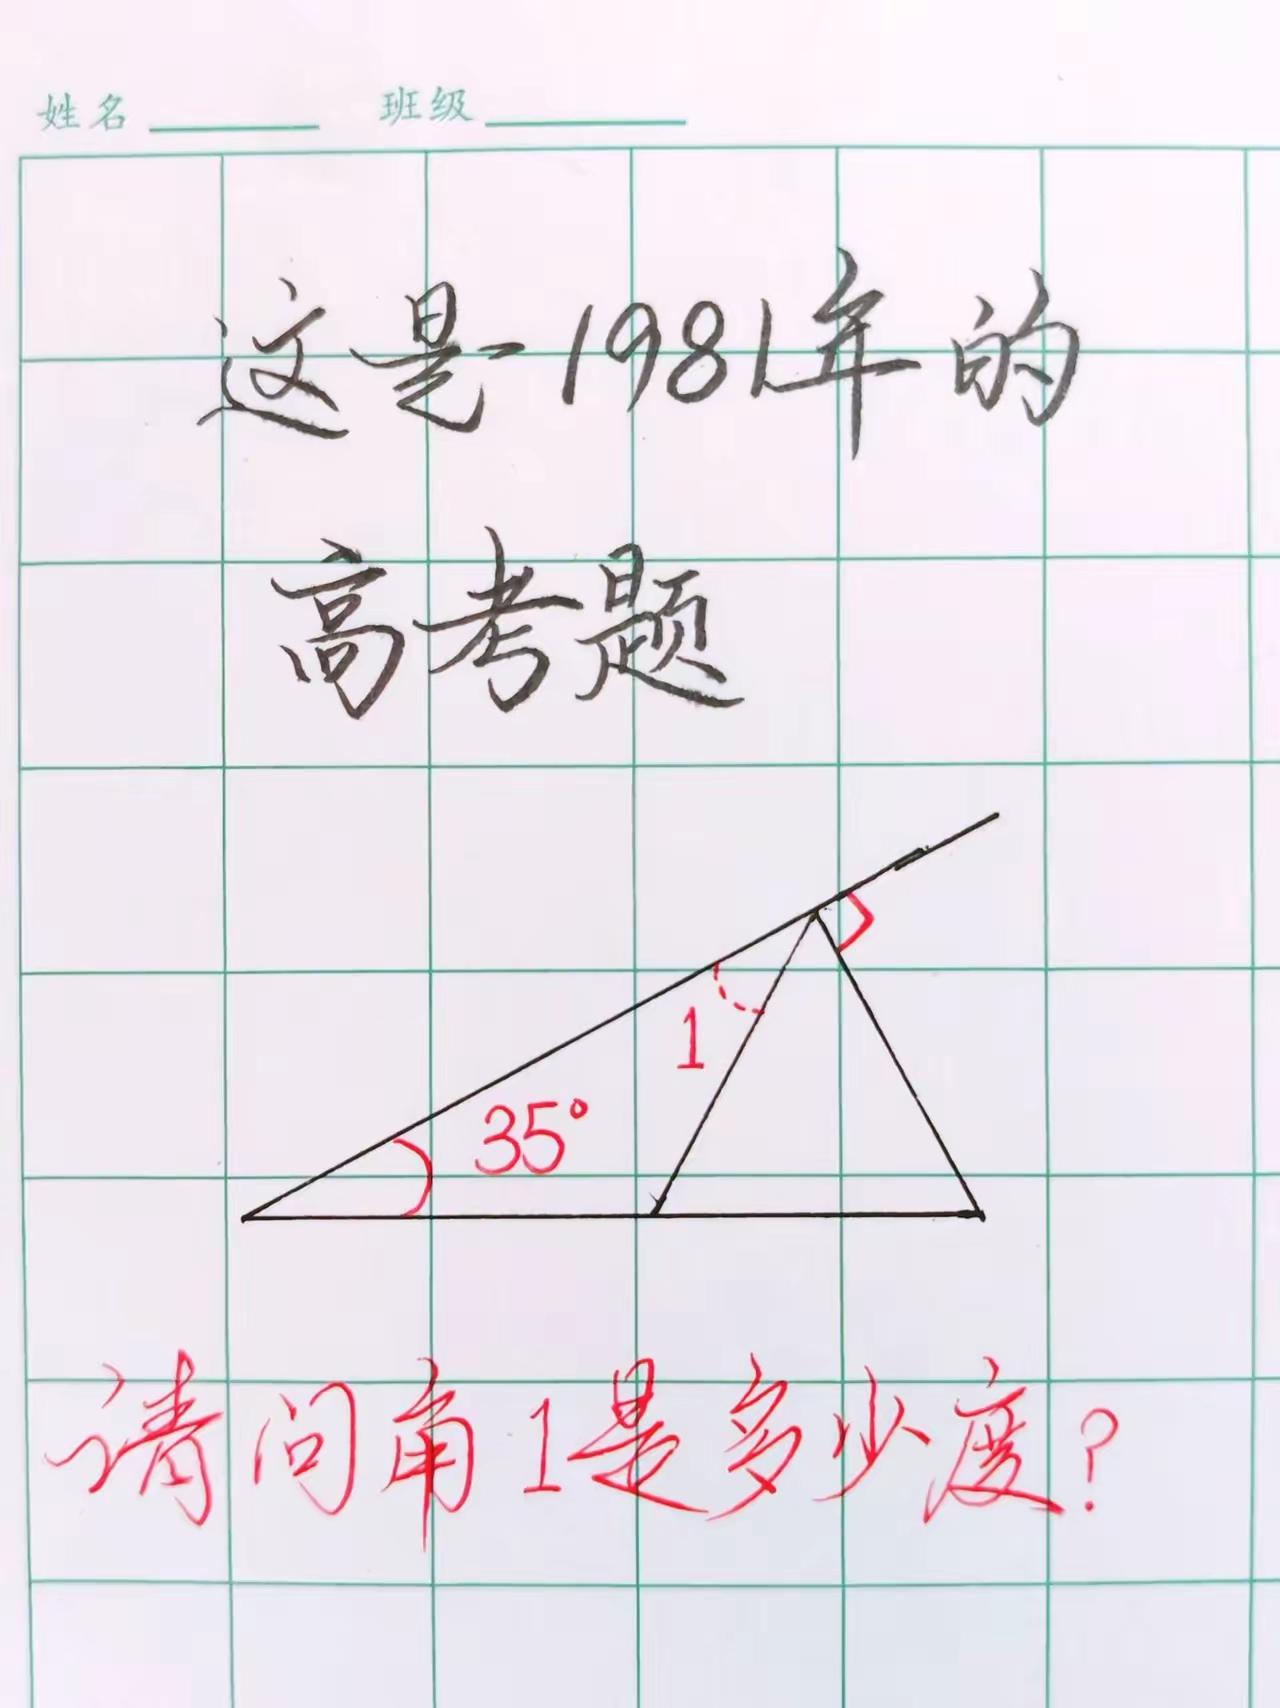 姓名 班级
这是1981年的
高考题
1
35°
请问角1是多少度?